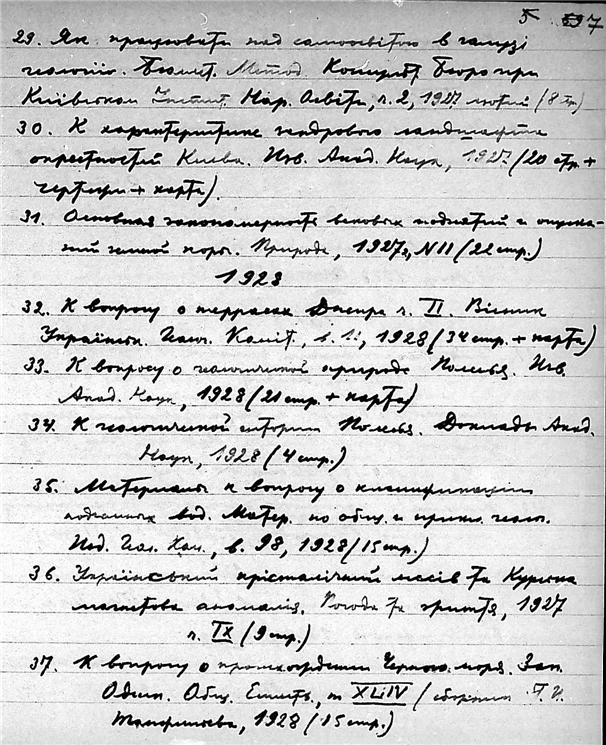 5 597
29. Як працювати над самоосвітою в галузі
геології. Бюлет. Метод. Консульт. Бюро при
Київськом Інстит. Нар. Освіти, ч. 2, 1927 лютий (8 ст)
30. К характеристике зандрового ландшафта
окрестностей Киева. Изв. Акад. Наук, 1927 (20 стр. +
чертежи + карта).
31. Основная закономерность вековых поднятий и опуска-
ний земной коры. Природа, 1927г, N 11 (22 стр.)
1928
32. К вопросу о террасах Днепра ч. II. Вісник
Українськ. Геол. Коміт., в. 11, 1928 (34 стр. + карта)
33. К вопросу о геологической природе Полесья. Изв.
Акад. Наук, 1928 (21 стр. + карта)
34. К геологической истории Полесья. Доклады Акад.
Наук, 1928 (4 стр.)
35. Материалы к вопросу о классификации
подземных вод. Матер. по общ. и прикл. геол.
Изд. Геол. Ком., в. 98, 1928 (15 стр.)
36. Український крісталічний масів та Курська
магнетова аномалія. 1927
ч. IX (9 стр.)
37. К вопросу о происхождении Черного моря. Зап.
Одесск. Общ. Естеств., т XLIV (сборник Г. И.
Танфильева, 1928 (15 стр.)